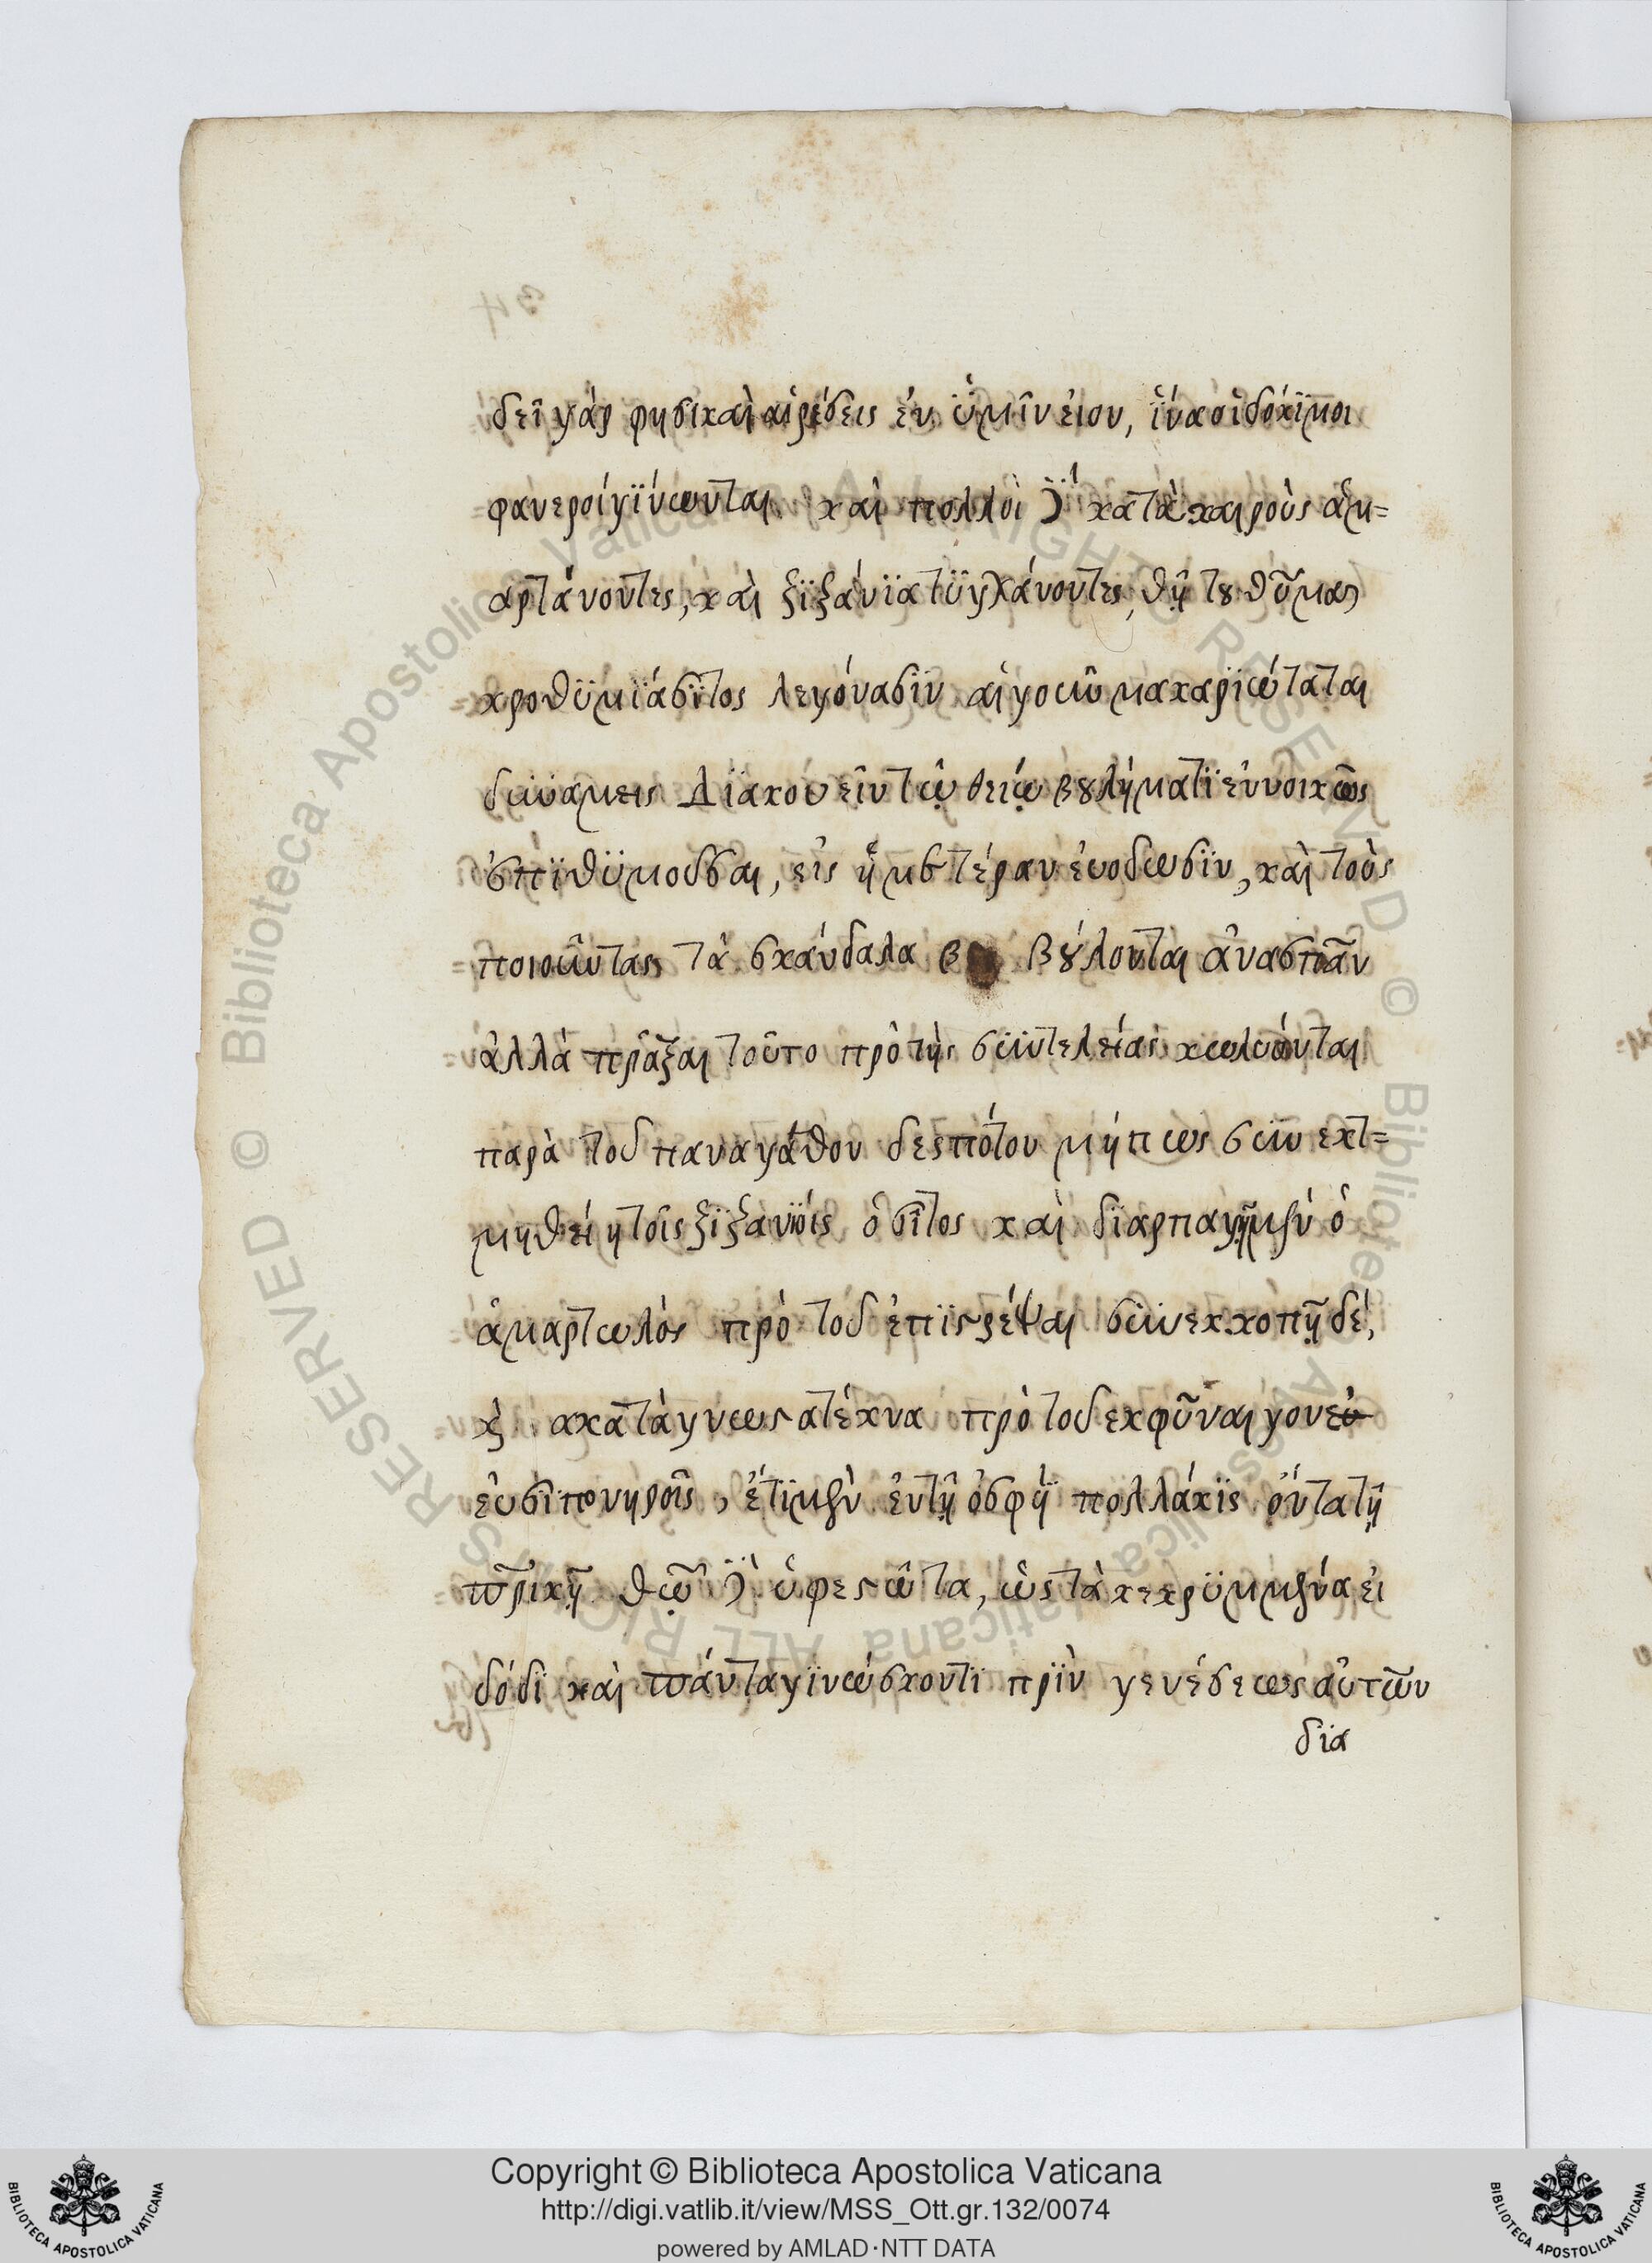 δεῖ γάρ φησι καὶ αἱρέσεις ἐν ὑμῖν εἰον, ἵνα οἱ δόκϊμοι
φανεροί γΐνωνται. καὶ πολλοὶ κατὰ καιροὺς ἁμ=
αρτάνοντες, καὶ ζϊζάνϊα τϋγχάνοντες,
κροθϋμϊάσϊτος λεγόνασϊν αἱ γοῦν μακαρϊώταται
δυνάμεις Δϊακονεῖν τῷ θείῳ βουλήματϊ εὐνοικῶς
ἐπϊθϋμοῦσαι, εἰς ἡμετέραν εὐοδωσϊν, καὶ τοὺς
ποιοῦντας τὰ σκάνδαλα β βούλονται ἀνασπᾶν
ἀλλὰ πρᾶξαι τοῦτο πρὸ τῆς συντελείας κωλύονται
παρὰ τοῦ παναγάθου δεσπότου μήπως συν εκτ=
μηθείη τοῖς ζϊζανϊοις ὁ σῖτος καὶ δϊαρπαγῇ μὲν ὁ
ἁμαρτωλὸς πρὸ τοῦ ἐπϊστρέψαι συνεκκοπῇ δέ,
κ ακατάγνωστα τέκνα πρὸ τοῦ εκφῦναι γονεῦ
εῦσϊ πονηροῖς, ἔτϊ μὲν ἐν τῇ ὀσφύϊ πολλάκϊς ὄντα τῇ
πρικῇ θῶ ὑφεστῶτα, ὡς τὰ κεκρϋμμένα εἰ
δόδϊ καὶ πάντα γϊνώσκοντϊ πρϊν γενέσεως αὐτῶν
δϊα
Copyright © Biblioteca Apostolica Vaticana
http://digi.vatlib.it/view/MSS_Ott.gr.132/0074
powered by AMLAD·NTT DATA
BIBLIOTECA APOSTOLICA VATICANA
BIBLIOTECA APOSTOLICA VATICANA